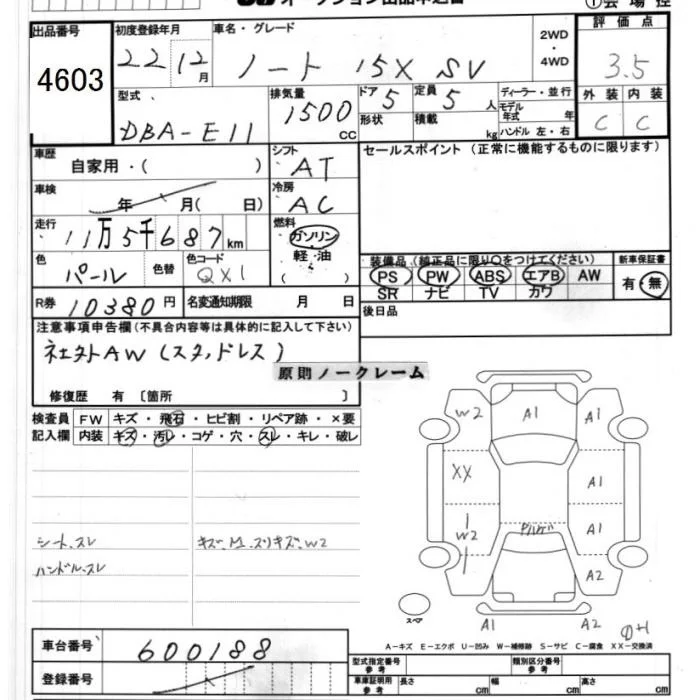 出品番号
4603
初度登録年月
22 12月
車名・グレード
ノート 15X SV
2WD・4WD
評価点
3.5
型式
DBA-E11
排気量
1500 CC
ドア 5
定員 5人
形状
積載 kg
ディーラー・並行
モデル年式 年
ハンドル 左・右
外装 内装
C C
車歴
自家用・( )
シフト
AT
セールスポイント (正常に機能するものに限ります)
車検
年 月( 日)
冷房
AC
走行
11万5千687km
燃料
ガソリン
軽・油
( )
色
パール
色替
色コード
QX1
装備品(純正品に限り○をつけてください)
新車保証書
PS PW ABS エアB AW
SR ナビ TV カワ
有・無
R券 10380円
名変通知期限 月 日
後日品
注意事項申告欄(不具合内容等は具体的に記入して下さい)
社外AW(スタッドレス)
原則ノークレーム
修復歴 有 〔箇所 〕
検査員記入欄
FW キズ・飛石・ヒビ割・リペア跡・×要
内装 キズ・汚レ・コゲ・穴・スレ・キレ・破レ
シート、スレ
ハンドル、スレ
キズ、M、スリキズ、W2
W2 A1 A1
XX A1
W2 A1
A2
スペア
A1 A2
A-キズ E-エクボ U-凹み W-補修跡 S-サビ C-腐食 XX-交換済
車台番号
600188
登録番号
型式指定番号 参考
類別区分番号 参考
車庫証明用 参考
長さ cm
幅 cm
高さ cm